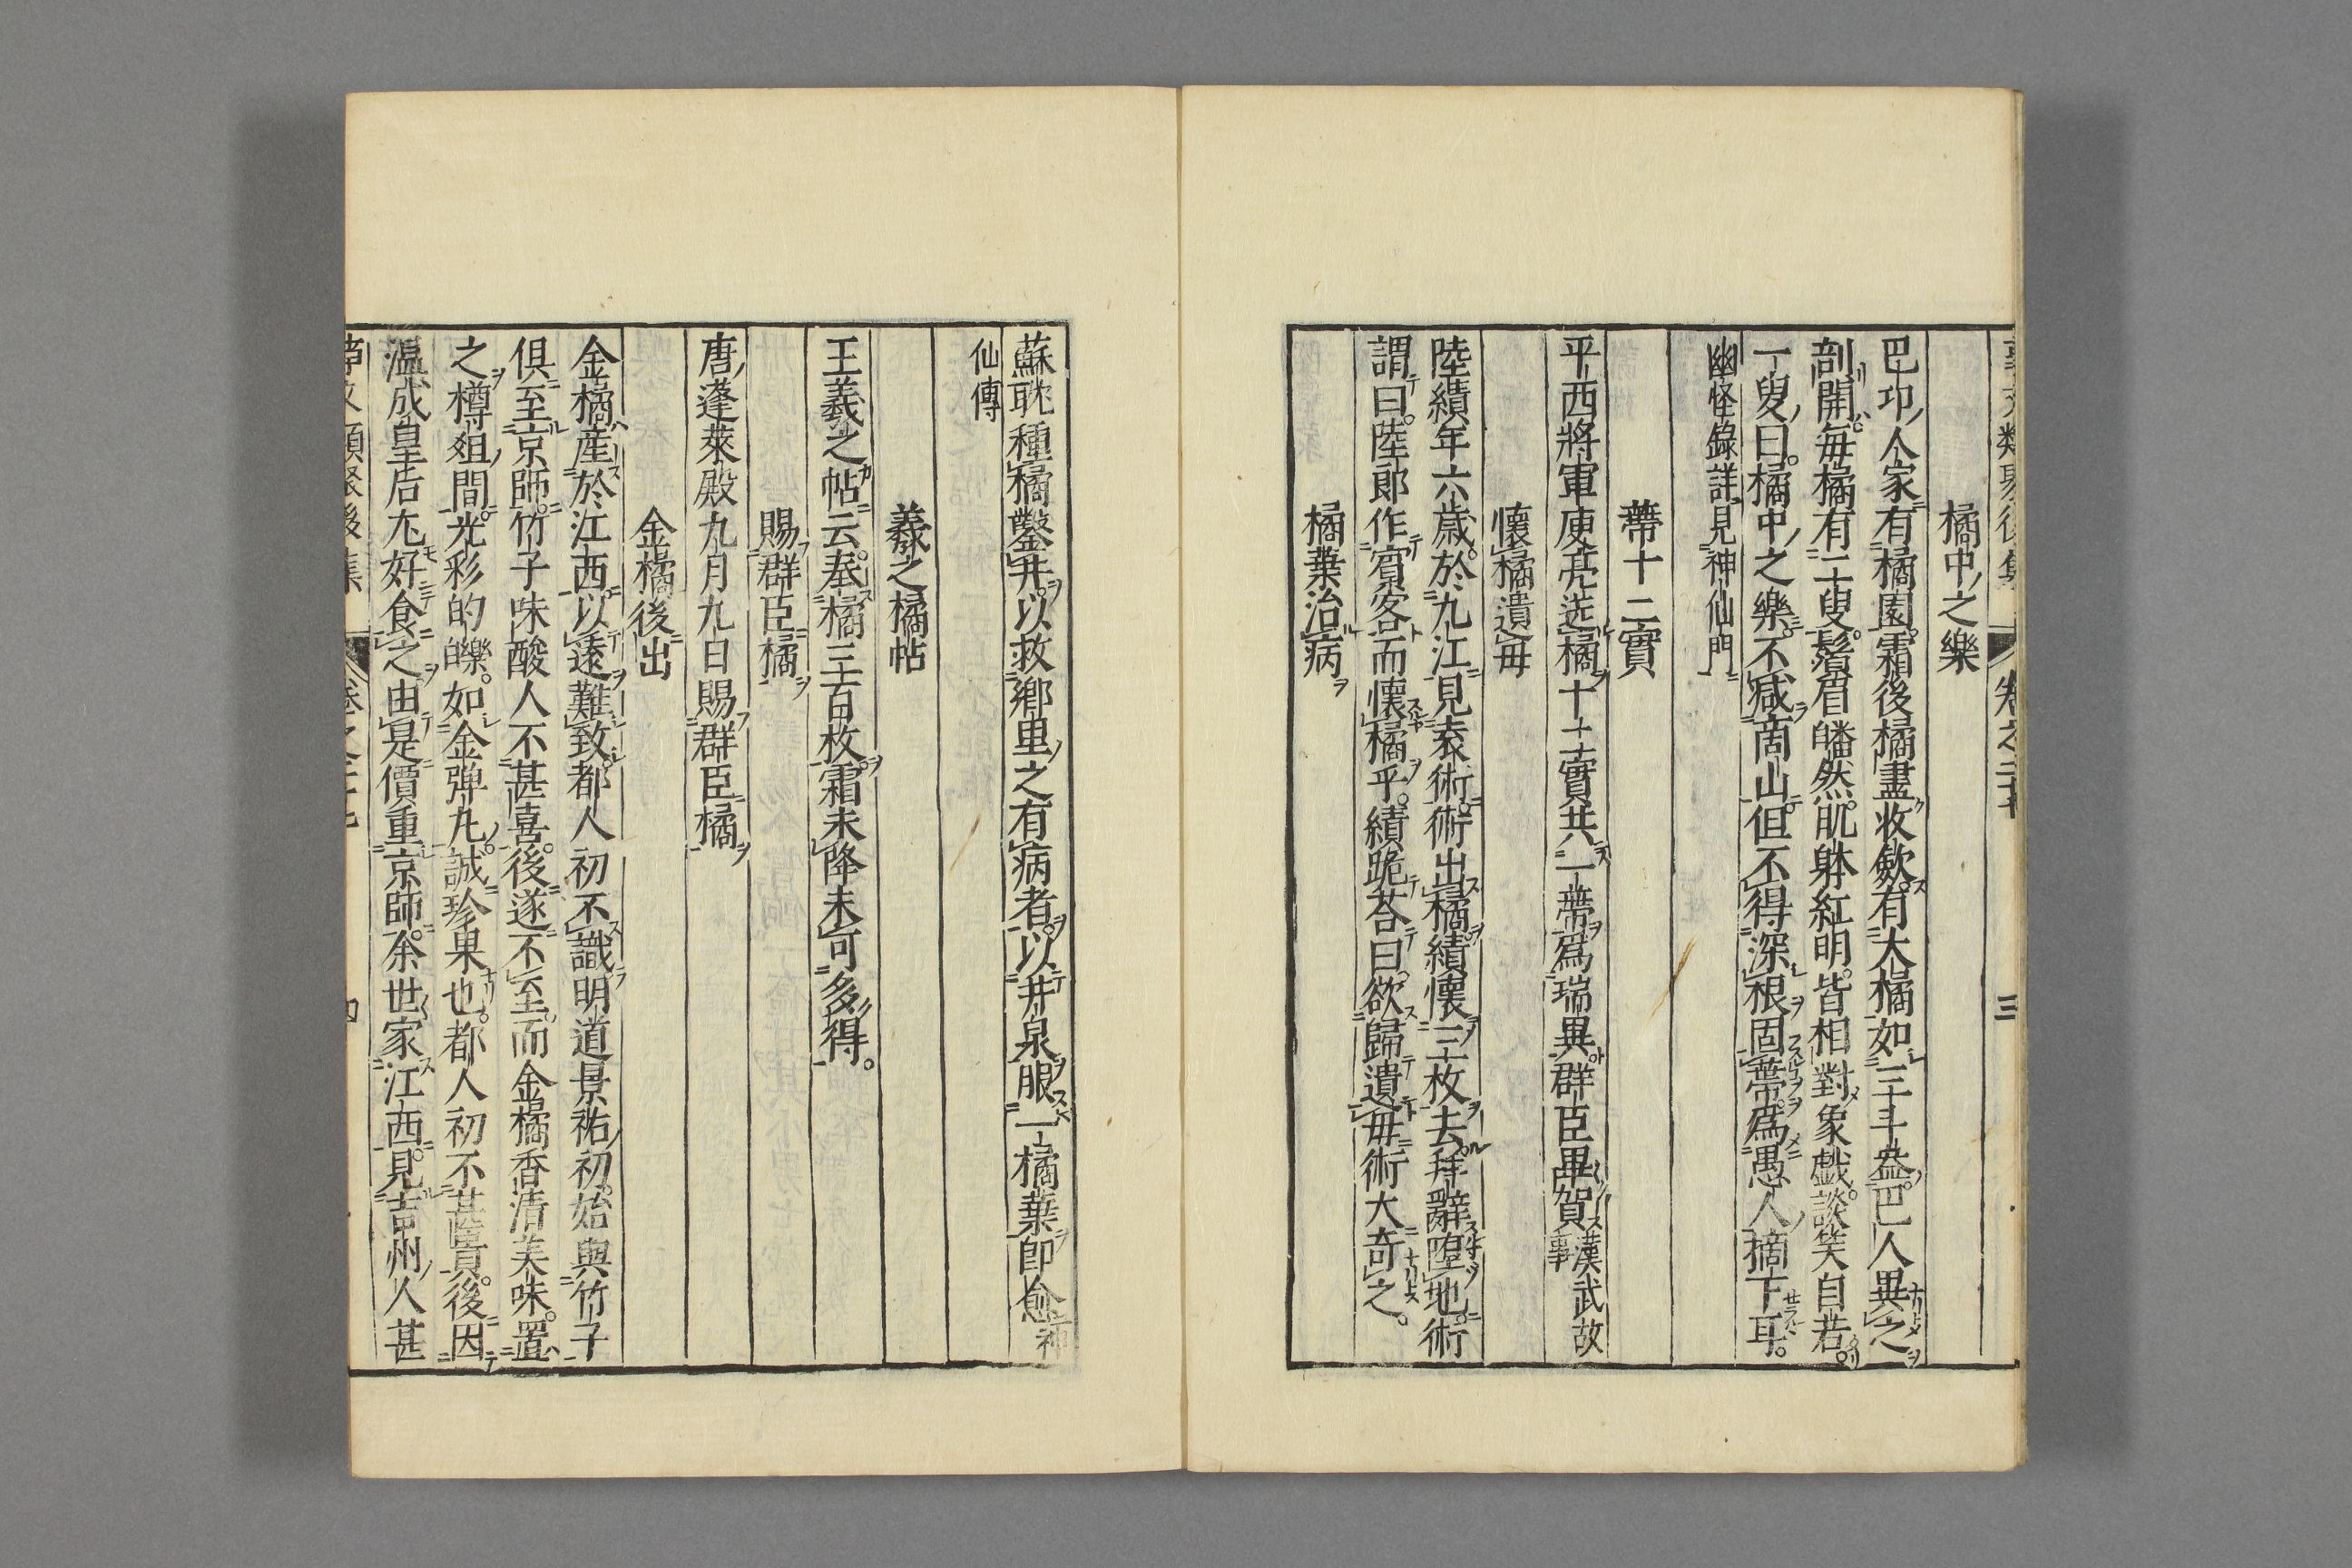 橘中之樂
巴邛人家有橘園霜後橘盡收歛有大橘如三斗盎巴人異之
剖開每橘有二叟鬚眉皤然肌躰紅明皆相對象戯談笑自若
一叟曰橘中之樂不减商山但不得深根固蔕爲愚人摘下耳
幽怪錄詳見神仙門
蔕十二實
平西將軍庾亮送橘十二實共一蔕爲瑞異群臣畢賀漢武故事
懷橘遺母
陸績年六歲於九江見袁術術出橘績懷三枚去拜辭墮地術
謂曰陸郎作賔客而懷橘乎績跪荅曰欲歸遺母術大奇之
橘葉治病
蘇耽種橘鑿井以救鄉里之有病者以井泉服一橘葉卽愈神
仙傳
羲之橘帖
王羲之帖云奉橘三百枚霜未降未可多得
賜群臣橘
唐蓬萊殿九月九日賜群臣橘
金橘後出
金橘産於江西以遠難致都人初不識明道景祐初始與竹子
俱至京師竹子味酸人不甚喜後遂不至而金橘香清美味置
之樽俎間光彩的皪如金彈丸誠珍果也都人初不甚貴後因
温成皇后尤好食之由是價重京師余世家江西見吉州人甚